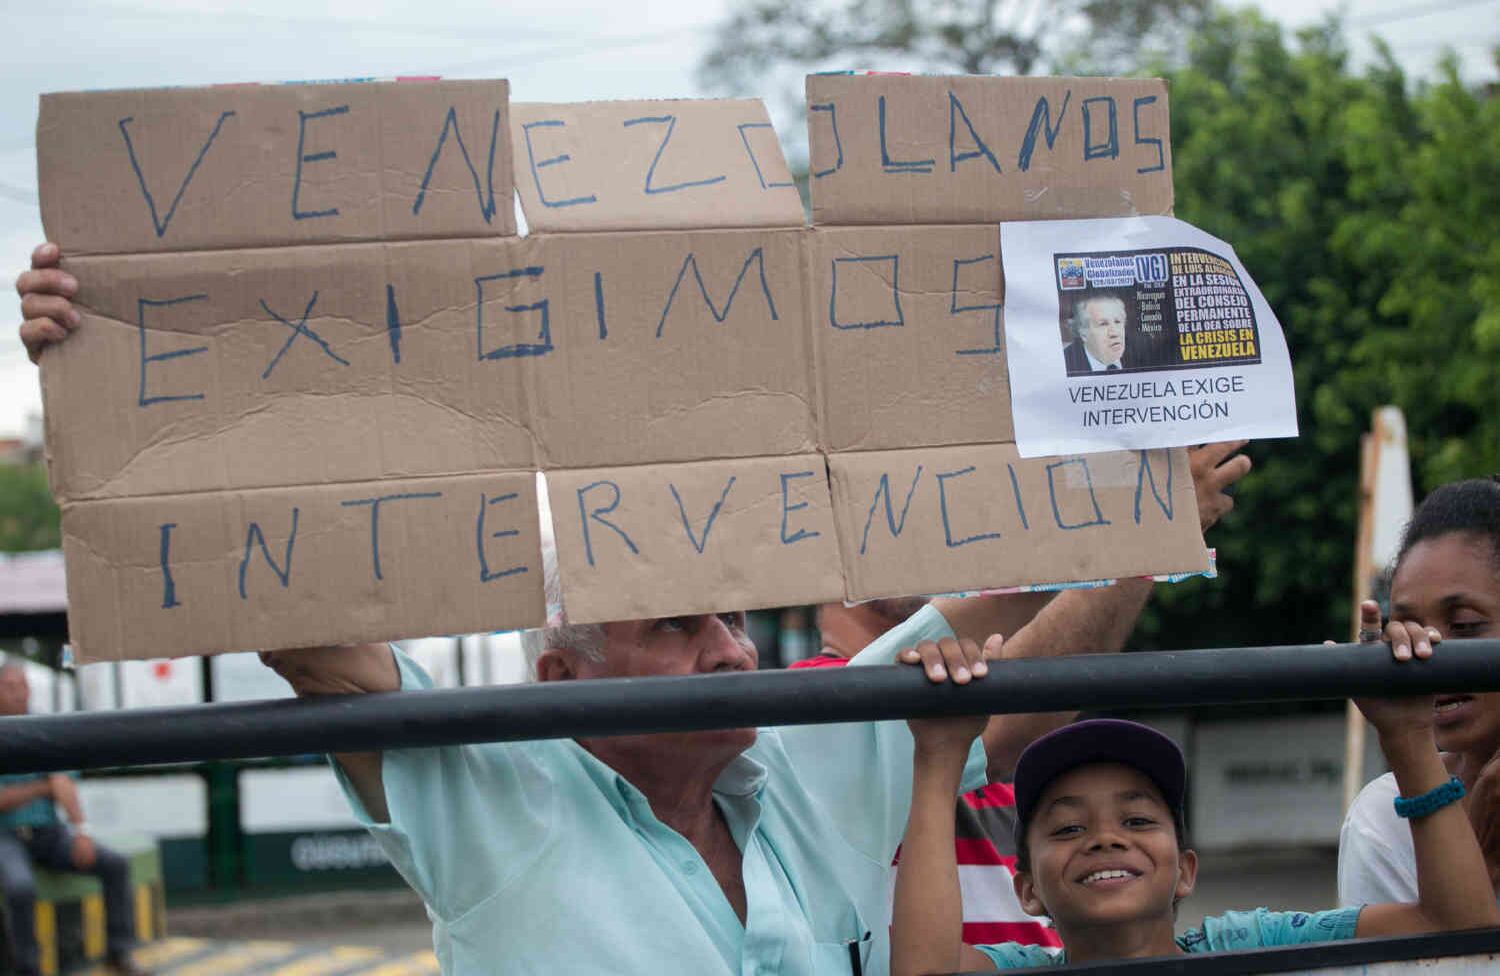 VENEZOLANOS
EXIGIMOS
INTERVENCION
Venezolanos
Globalizados
(VG)
Nicaragua
Bolivia
Canada
México
INTERVENCIÓN
DE LUIS ALMAGRO
EN LA SESIÓN
EXTRAORDINARIA
DEL CONSEJO
PERMANENTE
DE LA OEA SOBRE
LA CRISIS EN
VENEZUELA
VENEZUELA EXIGE
INTERVENCIÓN